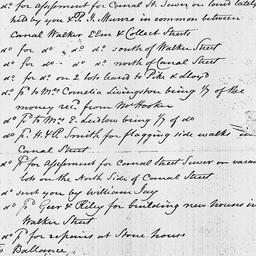 do for assessment for Canal St. Sewer on land lately
held by you & P. J. Munro in common between
Canal Walker Elm & Collect Streets
do for do do do south of Walker Street
do for do do do north of Canal Street
do for do on 2 lots leased to Pike & Lloyd
do pd to Mrs Cornelia Livingston being 1/7 of the
money recd from Mr Hooker
do pd to Mrs E. being 1/7 of do
do pd H. & P. Smith for flagging side walks in
Canal Street
do pd for assessment for Canal Street Sewer on vacan
lots on the North Side of Canal Street
do sent you by William Jay
do pd Geer & Riley for building new houses in
Walker Street
do pd for repairs at Stone house
To Ballance